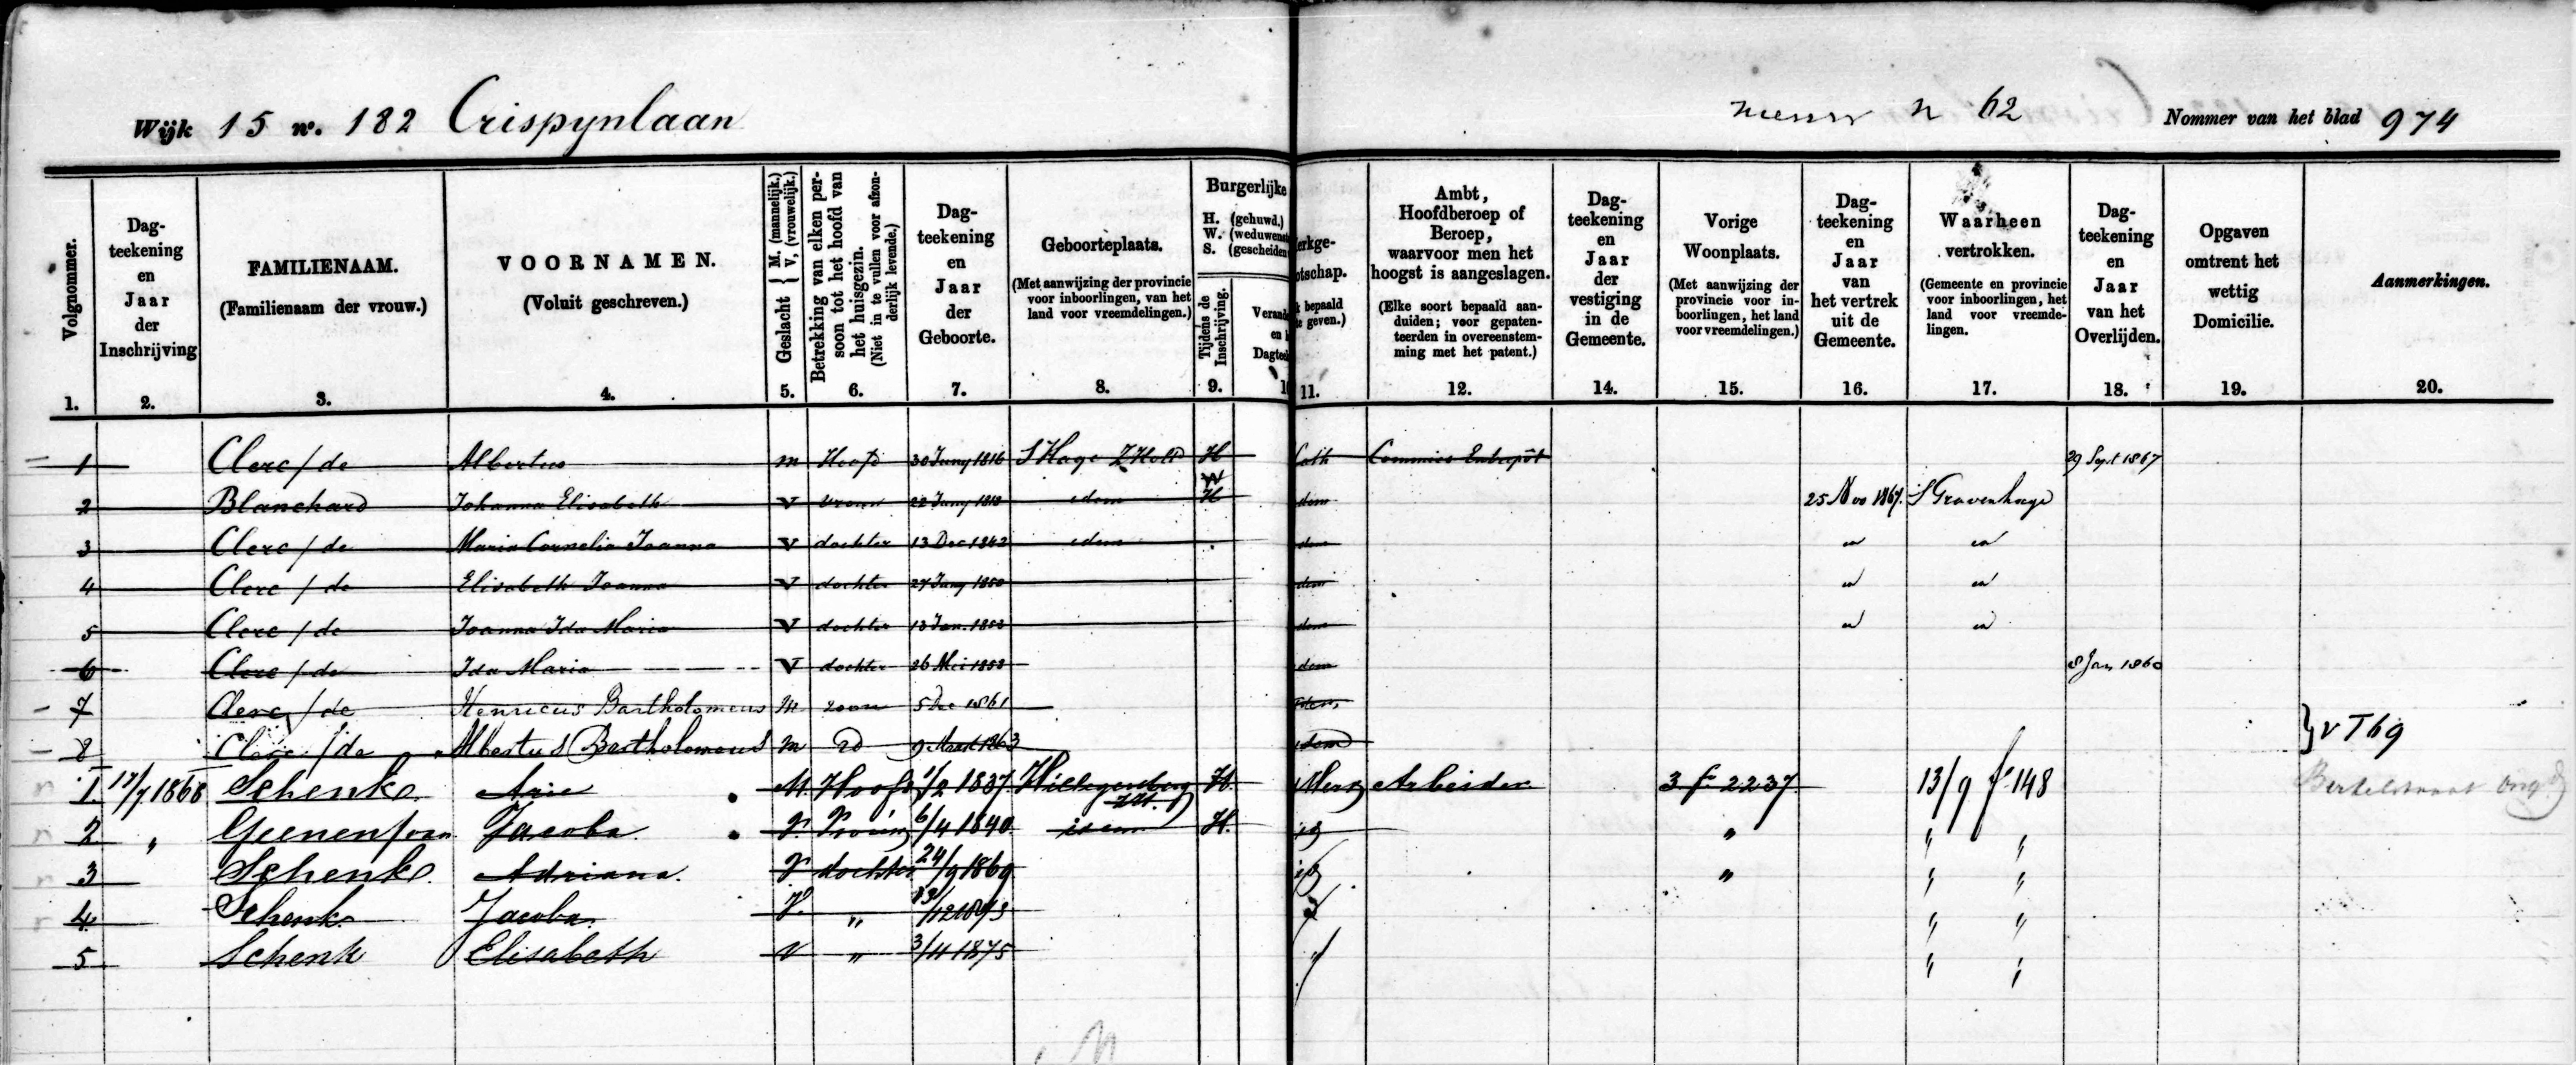 Wijk 15 n°. 182 Crispynlaan
nieuw n 62
Nommer van het blad 974
Volgnommer. 1.
Dag-teekening en Jaar der Inschrijving 2.
FAMILIENAAM. (Familienaam der vrouw.) 3.
VOORNAMEN. (Voluit geschreven.) 4.
Geslacht { M. (mannelijk.) V, (vrouwelijk.) 5.
Betrekking van elken per-soon tot het hoofd van het huisgezin. (Niet in te vullen voor afzon-derlijk levende.) 6.
Dag-teekening en Jaar der Geboorte. 7.
Geboorteplaats. (Met aanwijzing der provincie voor inboorlingen, van het land voor vreemdelingen.) 8.
Burgerlijke
H. (gehuwd.)
W. (weduwen
S. (gescheiden
Tijdens de Inschrijving. 9.
Verand en Dagtee
erkge-otschap. bepaald te geven.) 11.
Ambt, Hoofdberoep of Beroep, waarvoor men het hoogst is aangeslagen. (Elke soort bepaald aan-duiden; voor gepaten-teerden in overeenstem-ming met het patent.) 12.
Dag-teekening en Jaar der vestiging in de Gemeente. 14.
Vorige Woonplaats. (Met aanwijzing der provincie voor in-boorlingen, het land voor vreemdelingen.) 15.
Dag-teekening en Jaar van het vertrek uit de Gemeente. 16.
Waarheen vertrokken. (Gemeente en provincie voor inboorlingen, het land voor vreemde-lingen. 17.
Dag-teekening en Jaar van het Overlijden. 18.
Opgaven omtrent het wettig Domicilie. 19.
Aanmerkingen. 20.
1 Clerc / de Albertus m Hoofd 30 Juny 1816 S Hage Z Holld H Cath Commies Entrepôt 29 Sept 1867
2 Blanchard Johanna Elisabeth V vrouw 22 Juny 1818 idem W H idem 25 Nov 1867. S Gravenhage
3 Clerc / de Maria Cornelia Joanna V dochter 13 Dec 1842 idem idem " "
4 Clerc / de Elisabeth Joanna V dochter 27 Juny 1850 idem " "
5 Clerc / de Joanna Ida Maria V dochter 13 Jan. 1853 idem " "
6 Clerc / de Ida Maria V dochter 26 Mei 1858 idem 8 Jan 1860
7 Clerc / de Henricus Bartholomeus M zoon 5 Dec 1861 idem
8 Clerc / de Albertus Bartholomeus m id 9 Maart 1863 idem } v Thg
1. 17/7 1868 Schenk Arie M. Hoofd 1/2 1837 Hillegersberg ZH. H. Herv Arbeider 3 f 2237 13/9 f 148
2 " Geenen / van Jacoba V. Vrouw 6/4 1840 idem H. id " " "
3 Schenk Adriana. V dochter 24/9 1869 id " " "
4. Schenk Jacoba. V. " " "
5 Schenk Elisabeth V " 3/11 1875 " " "